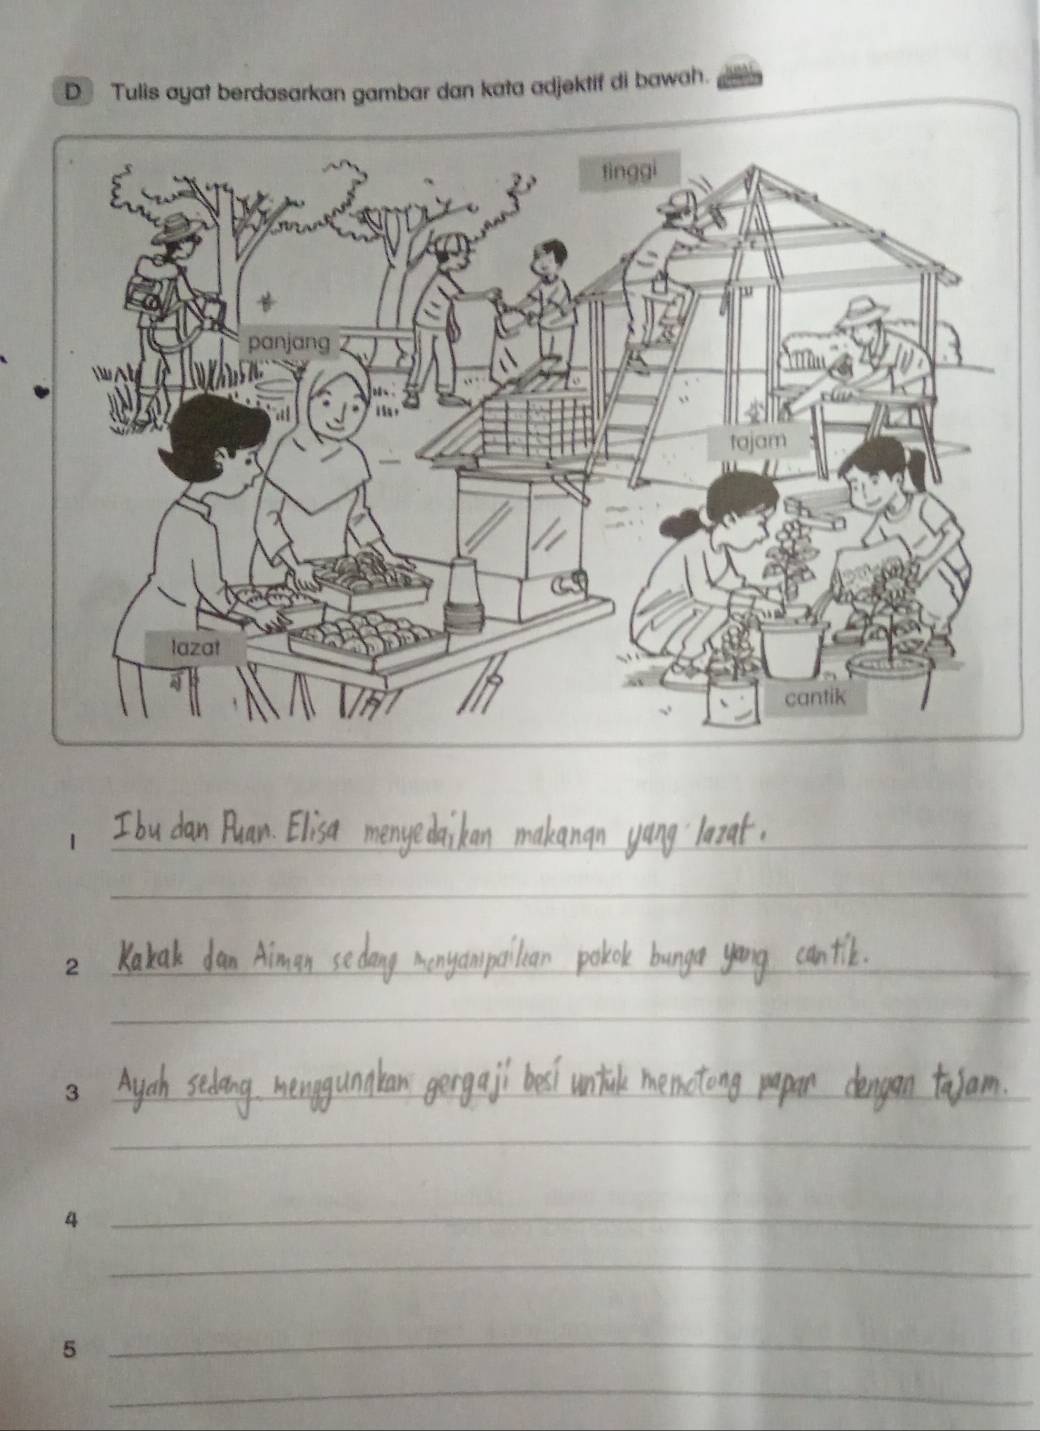 D Tulis ayat berdasarkan gambar dan kata adjektif di bawah.
tinggi
panjang
tajam
lazat
cantik
1 Ibu dan Puan. Elisa menyedaikan makanan yang lazat.
2 Kakak dan Aiman sedang menyampaikan pokok bunga yang cantik.
3 Ayah sedang menggunakan gergaji besi untuk memotong papan dengan tajam.
4
5